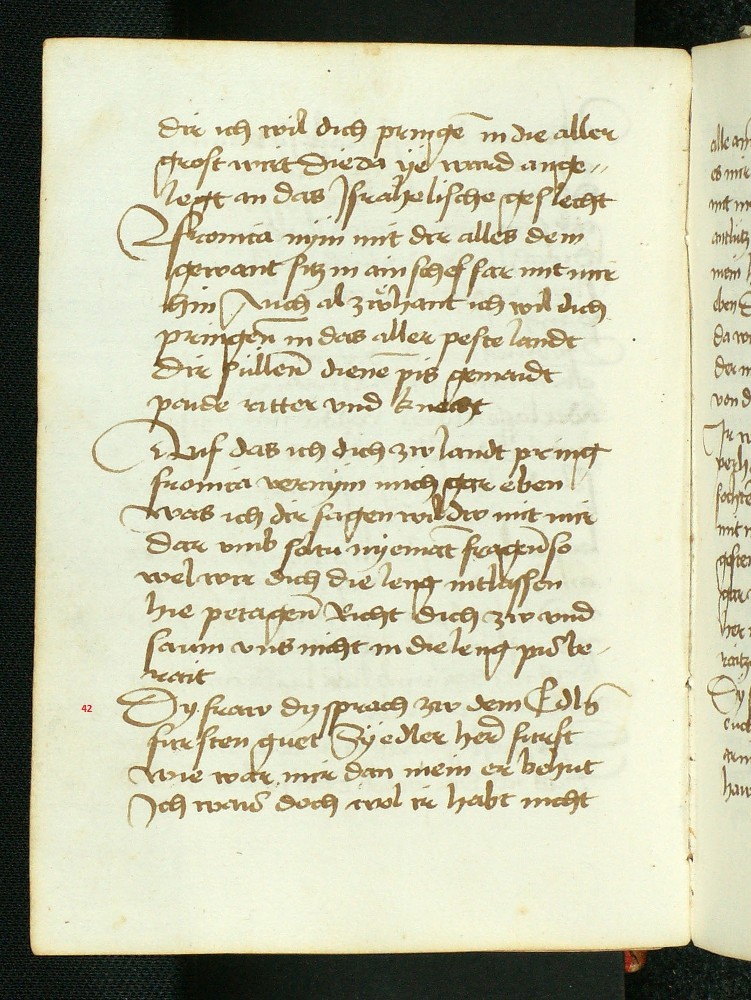 dir ich wil dich pringē in die aller
grost wirt die da ye ward ange〃
legt an das Israhelische geslecht
Fronica nym mit dir alles dein
gewant sitz in ain schef far mit mir
hin Auch al zw hant ich wil dich
pringen̄ in das aller peste landt
dir sullen̄ dienē pis gemaidt
paide ritter vnd knecht
Auf das ich dich zw landt pring
fronica vernym mich gar eben
was ich dir sagen wil dw mit mir
dar vmb soltu nyemāt fragen̄ so
wel wir dich die leng nit lassen
hie petagen̄ Richt dich zw vnd
sawm vns nicht in die leng pis be-
rait
42
Dy fraw dy sprach zw dem Edlē
fursten guet Sy edler her furst
wie war mir dan mein er behut
Ich wais doch wol ir habt nicht
alle
es mir
mit
antlitz
mein
eben
da
der
von d
Dy